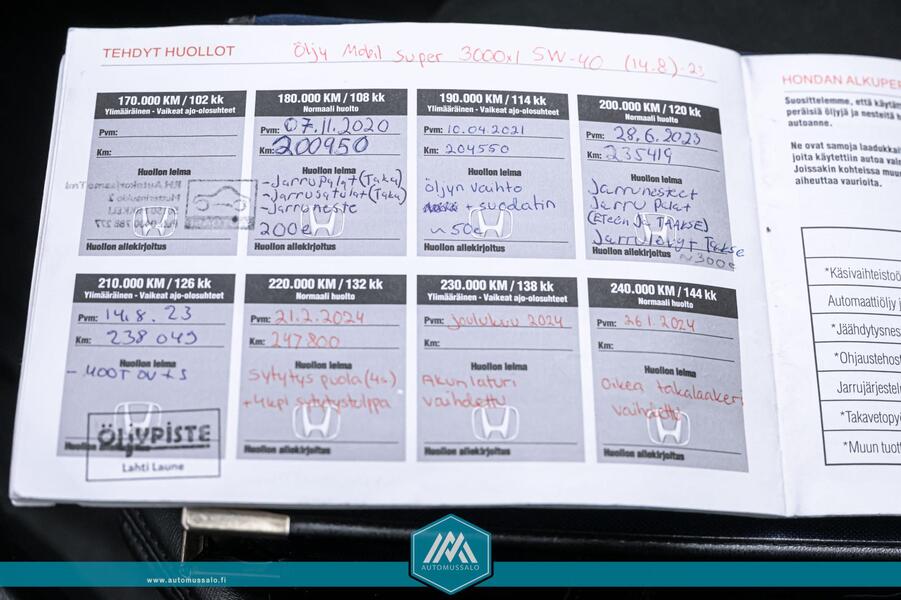 TEHDYT HUOLLOT
Öljy Mobil Super 3000x1 5W-40 (14.8)-23
170.000 KM / 102 kk
Ylimääräinen - Vaikeat ajo-olosuhteet
Pvm:
Km:
Huollon leima
Huollon allekirjoitus
180.000 KM / 108 kk
Normaali huolto
Pvm: 07.11.2020
Km: 200950
Huollon leima
-Jarrupalat (Taka)
-Jarrusatulat (Taka)
-Jarruneste
200€
Huollon allekirjoitus
190.000 KM / 114 kk
Ylimääräinen - Vaikeat ajo-olosuhteet
Pvm: 10.04.2021
Km: 204550
Huollon leima
öljyn vaihto
+ suodatin
~ 50€
Huollon allekirjoitus
200.000 KM / 120 kk
Normaali huolto
Pvm: 28.6.2023
Km: 235419
Huollon leima
Jarrunesteet
Jarru Palat
(Eteen ja TAAKSE)
Jarrulevyt Taakse
Huollon allekirjoitus ~300€
210.000 KM / 126 kk
Ylimääräinen - Vaikeat ajo-olosuhteet
Pvm: 14.8.23
Km: 238 049
Huollon leima
ÖLJYPISTE
Huollon allekirjoitus
Lahti Laune
220.000 KM / 132 kk
Normaali huolto
Pvm: 21.2.2024
Km: 247800
Huollon leima
Sytytys puola (4s)
+4kpl sytytystulppa
Huollon allekirjoitus
230.000 KM / 138 kk
Ylimääräinen - Vaikeat ajo-olosuhteet
Pvm: Joulukuu 2024
Km:
Huollon leima
Akun laturi
vaihdettu
Huollon allekirjoitus
240.000 KM / 144 kk
Normaali huolto
Pvm: 26.1.2024
Km:
Huollon leima
Oikea takalaakeri
vaihdettu
Huollon allekirjoitus
HONDAN ALKUPER
Suosittelemme, että käytäm
peräisiä öljyjä ja nesteitä h
autoanne.
Ne ovat samoja laadukkai
joita käytettiin autoa val
Joissakin kohteissa muu
aiheuttaa vaurioita.
*Käsivaihteistoö
Automaattiöljy j
*Jäähdytysnes
*Ohjaustehost
Jarrujärjestel
*Takavetopyö
*Muun tuott
AUTOMUSSALO
www.automussalo.fi